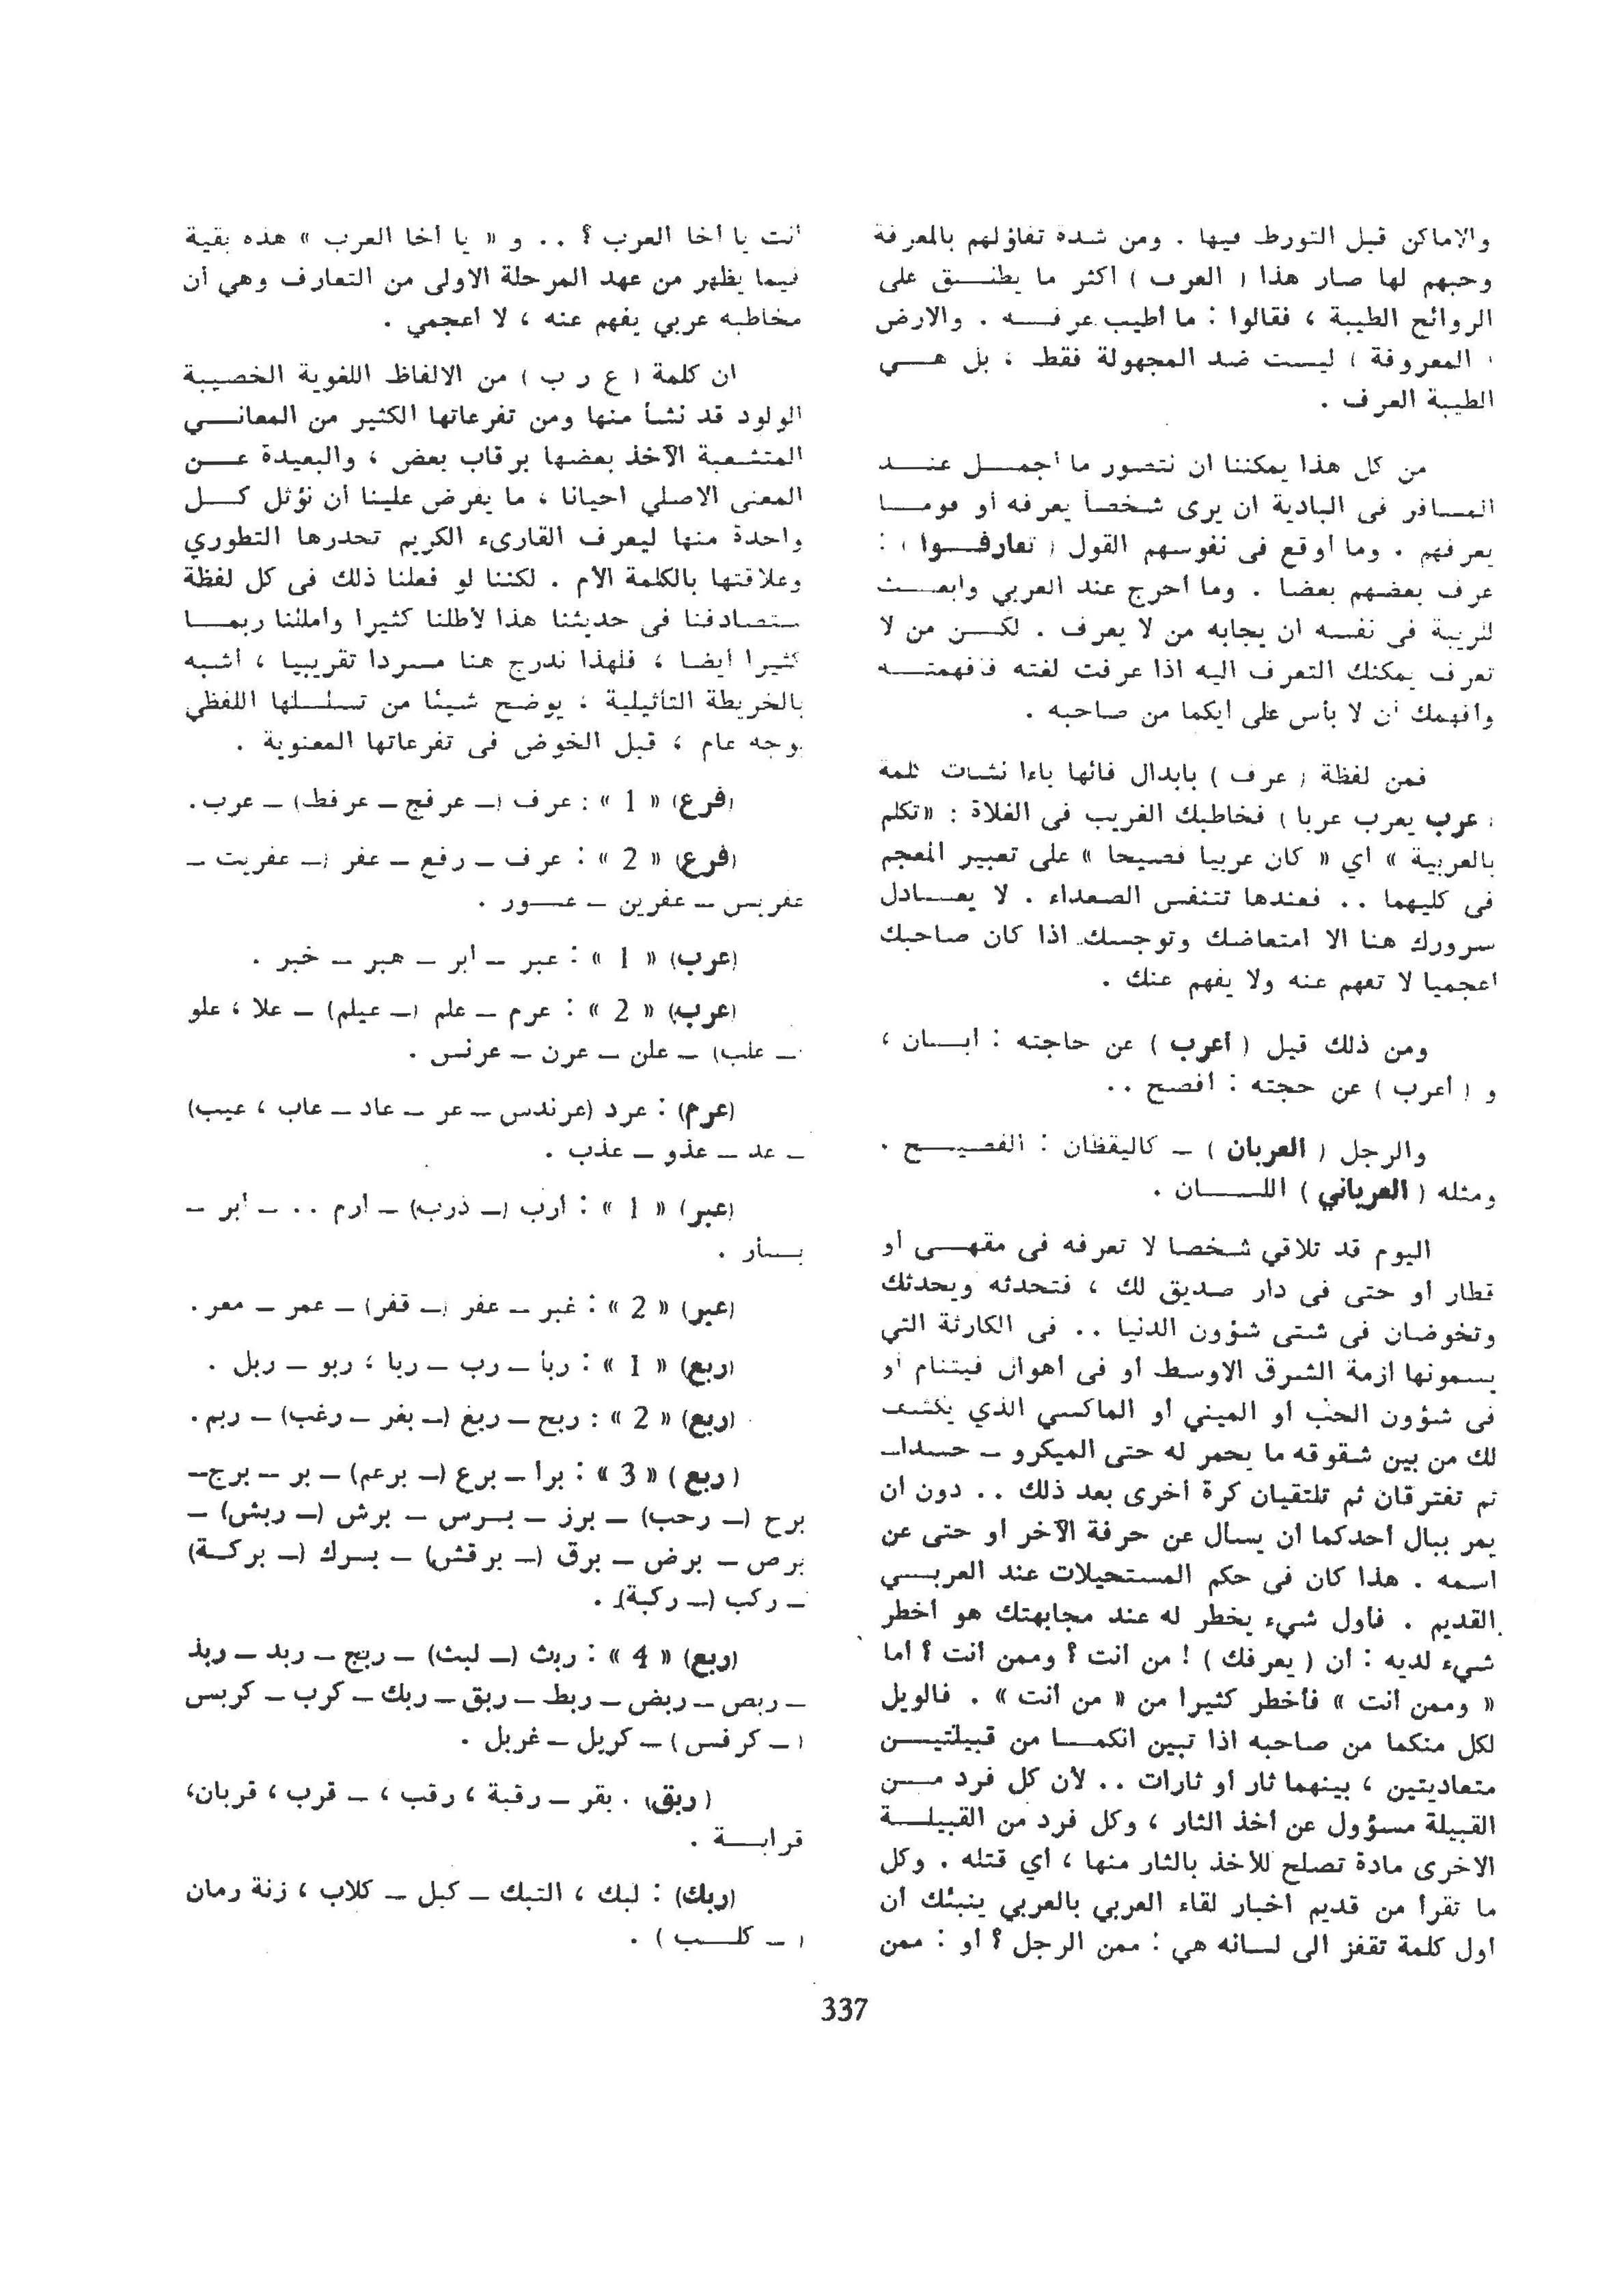 والاماكن قبل التورط فيها . ومن شدة تفاؤلهم بالمعرفة
وحبهم لها صار هذا ( العرف ) أكثر ما يطلق على
الروائح الطيبة ، فقالوا : ما أطيب عرفه . والارض
( المعروفة ) ليست ضد المجهولة فقط ، بل هي
الطيبة العرف .
من كل هذا يمكننا ان نتصور ما أجمل عند
المسافر فى البادية ان يرى شخصا يعرفه أو قوما
يعرفهم . وما أوقع فى نفوسهم القول ( تعارفوا ) :
عرف بعضهم بعضا . وما أحرج عند العربي وابعث
للريبة فى نفسه ان يجابه من لا يعرف . لكن من لا
تعرف يمكنك التعرف اليه اذا عرفت لغته فأفهمته
وأفهمك أن لا بأس على أيكما من صاحبه .
فمن لفظة ( عرف ) بابدال فائها باءا نشأت ثمة
( عرب يعرب عربا ) فخاطبك الغريب فى الفلاة : «تكلم
بالعربية » أي « كان عربيا فصيحا » على تعبير المعجم
فى كليهما .. فعندها تتنفس الصعداء . لا يعادل
سرورك هنا الا امتعاضك وتوجسك اذا كان صاحبك
اعجميا لا تفهم عنه ولا يفهم عنك .
ومن ذلك قيل ( أعرب ) عن حاجته : ابان ،
و ( أعرب ) عن حجته : أفصح ..
والرجل ( العربان ) — كاليقظان : الفصيح .
ومثله ( العرباني ) اللسان .
اليوم قد تلاقي شخصا لا تعرفه فى مقهى أو
قطار أو حتى فى دار صديق لك ، فتحدثه ويحدثك
وتخوضان فى شتى شؤون الدنيا .. فى الكارثة التي
يسمونها ازمة الشرق الاوسط أو فى اهوال فيتنام أو
فى شؤون الحب أو الميني أو الماكسي الذي يكشف
لك من بين شقوقه ما يحمر له حتى الميكرو — حسدا—
ثم تفترقان ثم تلتقيان كرة أخرى بعد ذلك .. دون ان
يمر ببال أحدكما ان يسأل عن حرفة الآخر أو حتى عن
اسمه . هذا كان فى حكم المستحيلات عند العربي
القديم . فأول شيء يخطر له عند مجابهتك هو أخطر
شيء لديه : أن ( يعرفك ) ! من أنت ؟ وممن أنت ؟ أما
« وممن أنت » فأخطر كثيرا من « من أنت » . فالويل
لكل منكما من صاحبه اذا تبين انكما من قبيلتين
متعاديتين ، بينهما ثار أو ثارات .. لأن كل فرد من
القبيلة مسؤول عن أخذ الثار ، وكل فرد من القبيلة
الاخرى مادة تصلح للأخذ بالثار منها ، أي قتله . وكل
ما تقرأ من قديم أخبار لقاء العربي بالعربي ينبئك أن
أول كلمة تقفز الى لسانه هي : ممن الرجل ؟ أو : ممن
أنت يا أخا العرب ؟ .. و « يا أخا العرب » هذه بقية
فيما يظهر من عهد المرحلة الاولى من التعارف وهي أن
مخاطبه عربي يفهم عنه ، لا أعجمي .
ان كلمة ( ع ر ب ) من الالفاظ اللغوية الخصيبة
الولود قد نشأ منها ومن تفرعاتها الكثير من المعاني
المتشعبة الآخذ بعضها برقاب بعض ، والبعيدة عن
المعنى الاصلي احيانا ، ما يفرض علينا أن نؤثل كل
واحدة منها ليعرف القارىء الكريم تحدرها التطوري
وعلاقتها بالكلمة الام . لكننا لو فعلنا ذلك فى كل لفظة
ستصادفنا فى حديثنا هذا لأطلنا كثيرا وأمللنا ربما
كثيرا أيضا ، فلهذا ندرج هنا مسردا تقريبيا ، أشبه
بالخريطة التأثيلية ، يوضح شيئا من تسلسلها اللفظي
بوجه عام ، قبل الخوض فى تفرعاتها المعنوية .
(فرع) « 1 » : عرف (— عرفج — عرفط) — عرب.
(فرع) « 2 » : عرف — رفع — عفر (— عفريت —
عفريس — عفرين —
(عرب) « 1 » : عبر — ابر — هبر — خبر .
(عرب) « 2 » : عرم — علم (— عيلم) — علا ، علو
— علب) — علن — عرن — عرنس .
(عرم) : عرد (عرندس — عر — عاد — عاب ، عيب)
— عد — عذو — عذب .
(عبر) « 1 » : أرب (— ذرب) — أرم .. — أبر —
بأر .
(عبر) « 2 » : غبر — عفر (— قفر) — عمر — معر.
(ربع) « 1 » : ربأ — رب — ربا ، ربو — ربل .
(ربع) « 2 » : ربح — ربغ (— بغر — رغب) — ربم.
(ربع) « 3 » : برأ — برع (— برعم) — بر — برج—
برح (— رحب) — برز — برس — برش (— ربش) —
برص — برض — برق (— برقش) — برك (— بركة)
— ركب (— ركبة).
(ربع) « 4 » : ربث (— لبث) — ربج — ربد — ربذ
— ربص — ربض — ربط — ربق — ربك — كرب — كربس
( — كرفس ) — كربل — غربل .
(ربق) . بقر — رقبة ، رقب ، — قرب ، قربان،
قرابة .
(ربك) : لبك ، التبك — كبل — كلاب ، زنة رمان
( — كلب ) .
337